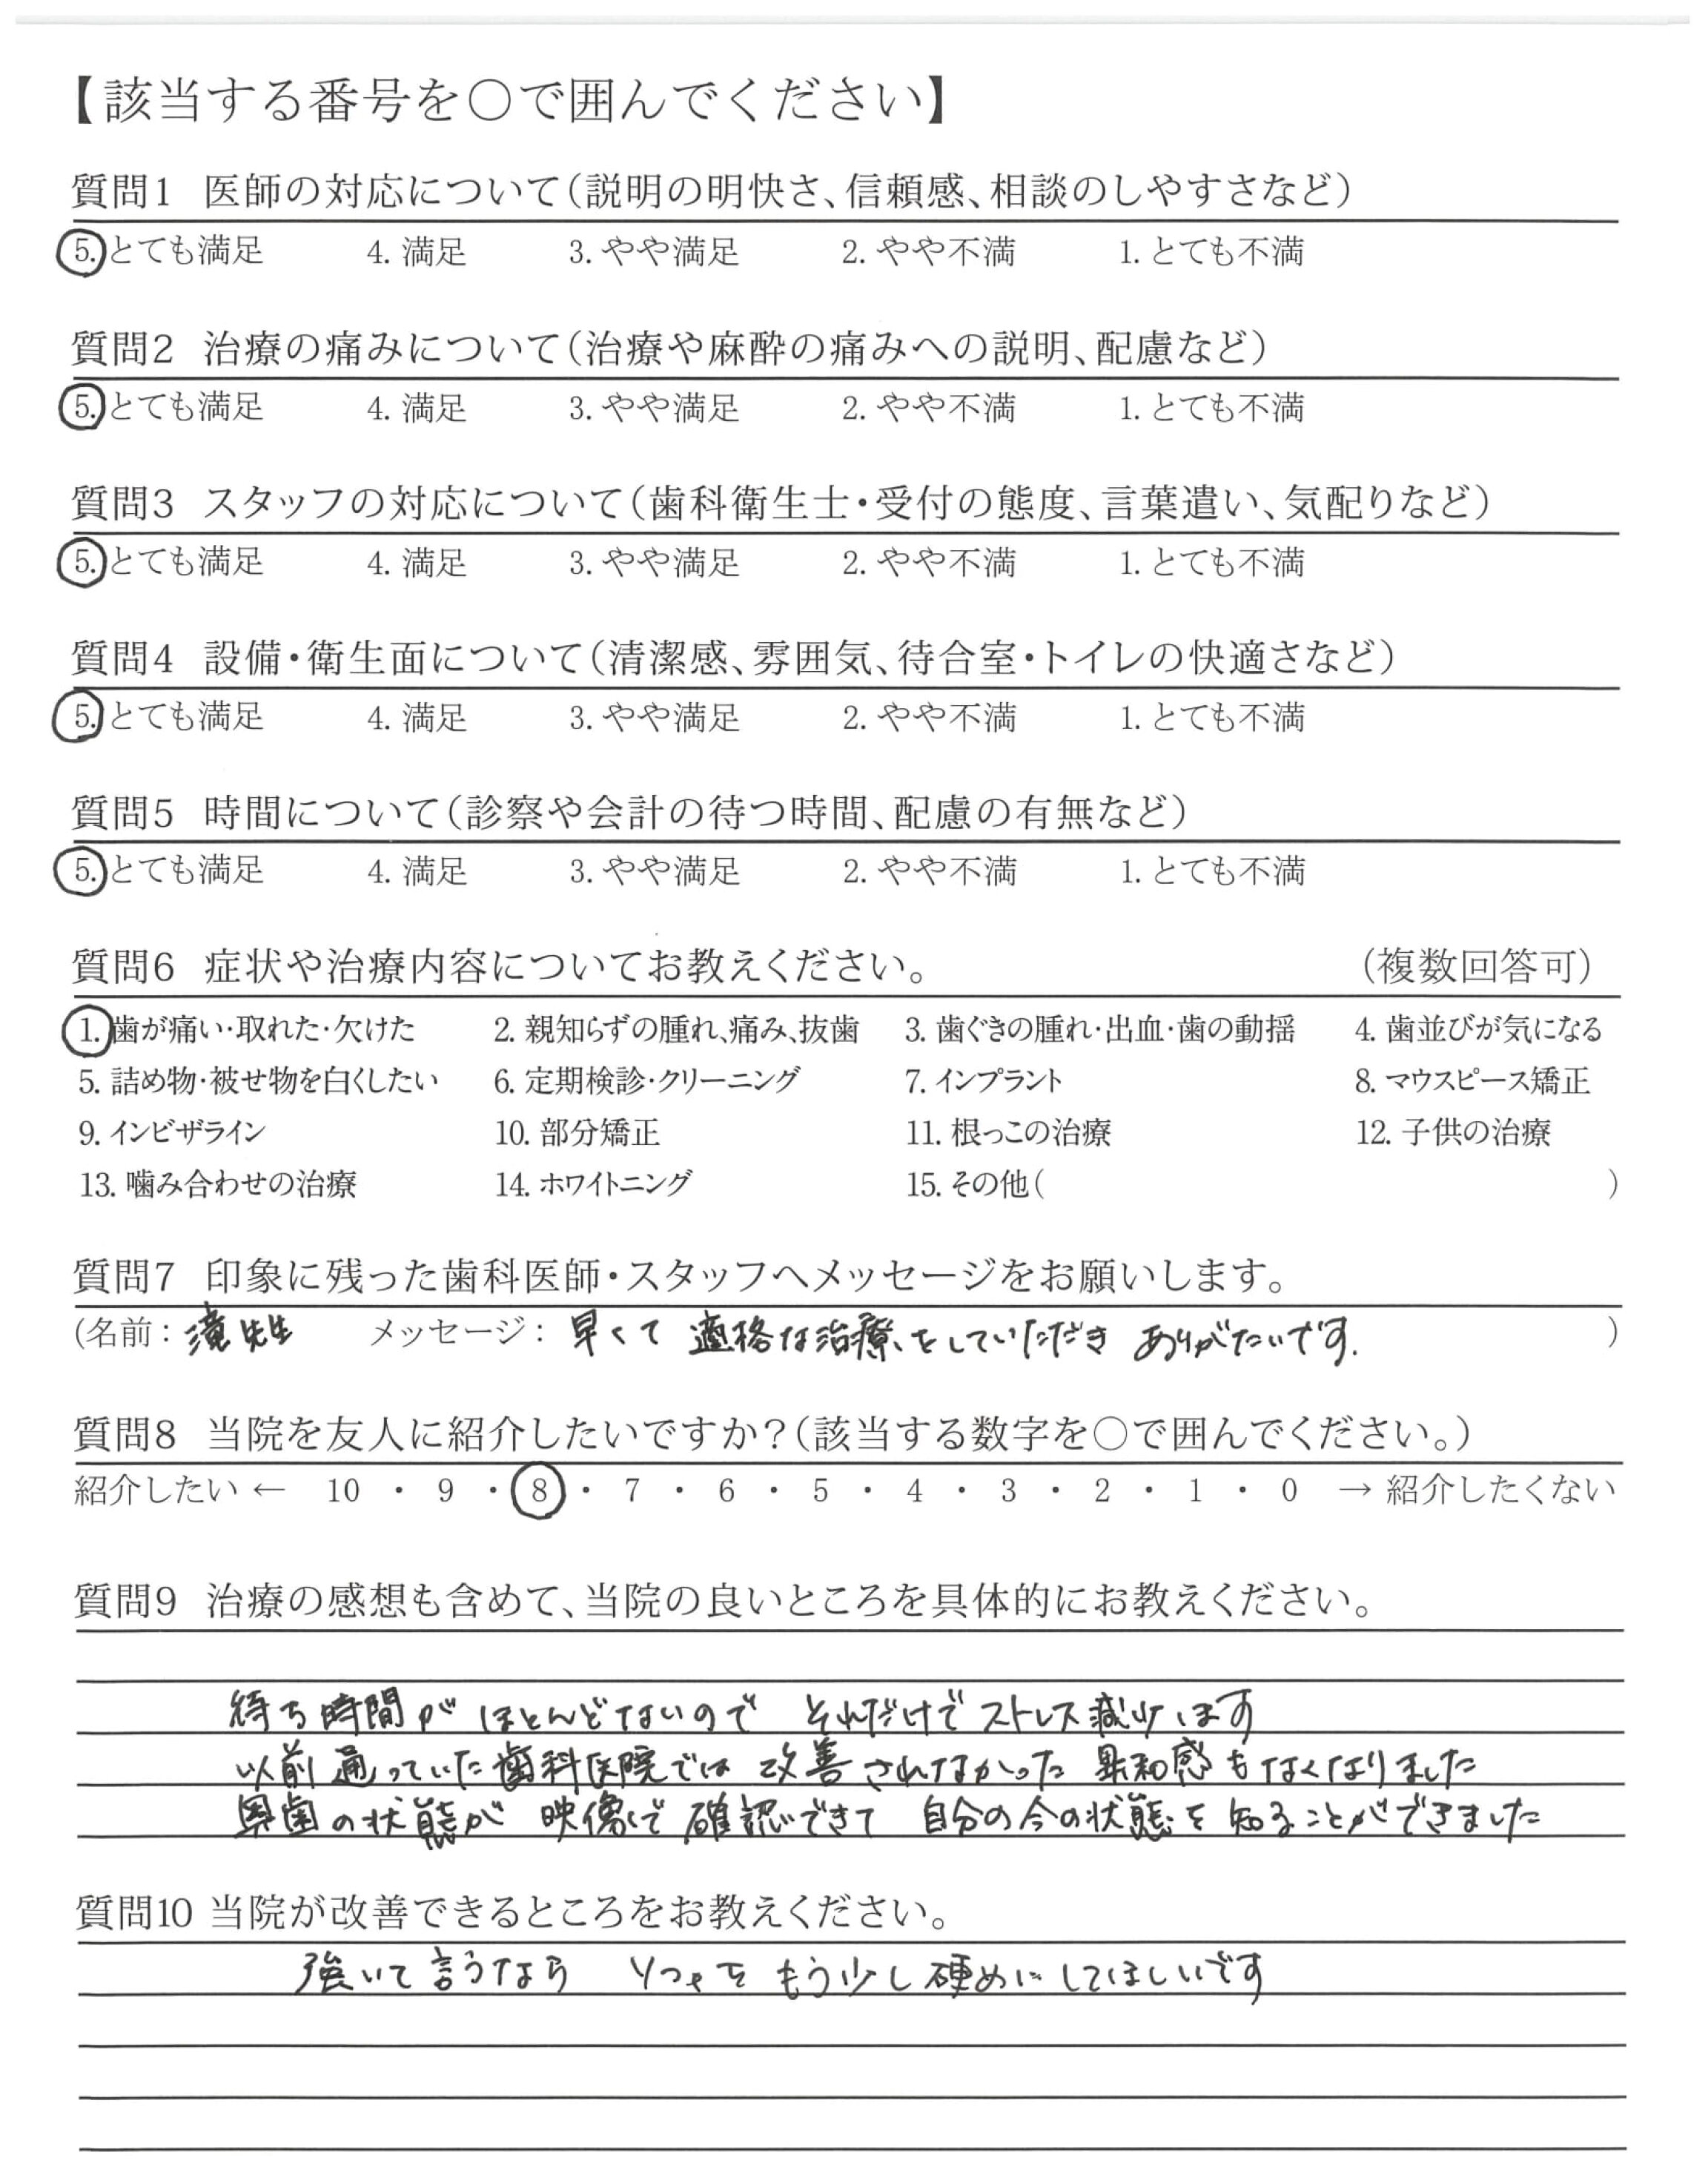 【該当する番号を○で囲んでください】
質問1 医師の対応について（説明の明快さ、信頼感、相談のしやすさなど）
5. とても満足 4. 満足 3. やや満足 2. やや不満 1. とても不満
質問2 治療の痛みについて（治療や麻酔の痛みへの説明、配慮など）
5. とても満足 4. 満足 3. やや満足 2. やや不満 1. とても不満
質問3 スタッフの対応について（歯科衛生士・受付の態度、言葉遣い、気配りなど）
5. とても満足 4. 満足 3. やや満足 2. やや不満 1. とても不満
質問4 設備・衛生面について（清潔感、雰囲気、待合室・トイレの快適さなど）
5. とても満足 4. 満足 3. やや満足 2. やや不満 1. とても不満
質問5 時間について（診察や会計の待つ時間、配慮の有無など）
5. とても満足 4. 満足 3. やや満足 2. やや不満 1. とても不満
質問6 症状や治療内容についてお教えください。 （複数回答可）
1. 歯が痛い・取れた・欠けた 2. 親知らずの腫れ、痛み、抜歯 3. 歯ぐきの腫れ・出血・歯の動揺 4. 歯並びが気になる
5. 詰め物・被せ物を白くしたい 6. 定期検診・クリーニング 7. インプラント 8. マウスピース矯正
9. インビザライン 10. 部分矯正 11. 根っこの治療 12. 子供の治療
13. 噛み合わせの治療 14. ホワイトニング 15. その他（ ）
質問7 印象に残った歯科医師・スタッフへメッセージをお願いします。
（名前：滝先生 メッセージ：早くて 適格な治療をしていただき ありがたいです. ）
質問8 当院を友人に紹介したいですか？（該当する数字を○で囲んでください。）
紹介したい ← 10 ・ 9 ・ 8 ・ 7 ・ 6 ・ 5 ・ 4 ・ 3 ・ 2 ・ 1 ・ 0 → 紹介したくない
質問9 治療の感想も含めて、当院の良いところを具体的にお教えください。
待ち時間が ほとんどないので それだけで ストレス減ります
以前通っていた歯科医院では 改善されなかった 異和感も なくなりました
奥歯の状態が 映像で 確認できて 自分の今の状態を 知ることができました
質問10 当院が改善できるところをお教えください。
強いて言うなら ソファを もう少し硬めに してほしいです